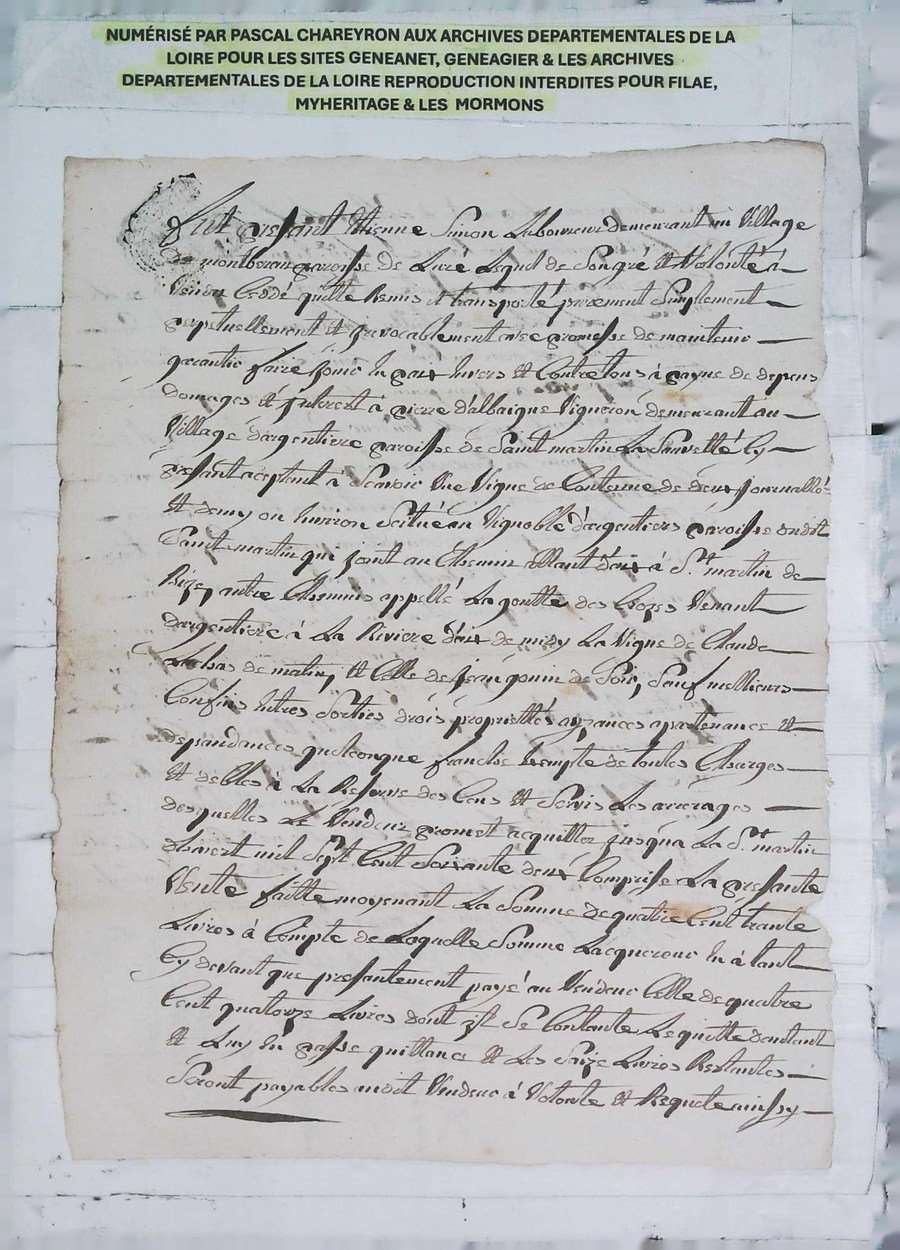 NUMÉRISÉ PAR PASCAL CHAREYRON AUX ARCHIVES DEPARTEMENTALES DE LA
LOIRE POUR LES SITES GENEANET, GENEAGIER & LES ARCHIVES
DEPARTEMENTALES DE LA LOIRE REPRODUCTION INTERDITES POUR FILAE,
MYHERITAGE & LES MORMONS
fut present Etienne Simon Laboureur demeurant au Village
de paroisse de Luré Lequel de Son gré et Volonté à
Vendu Ceddé quitte Remis et transporté purement Simplement
perpetuellement et irevocablement avec promesse de maintenir
garantir faire jouir En paix Envers et Contre tous à payne de depens
domages et Interest à pierre d'albaigue Vigneron demeurant au
Village d'argentiere paroisse de Saint martin La Sauveté Cy
present aceptant à Scavoir Une Vigne de Contenue de deux Journallé
et demy ou Environ Scitué au Vignoble d'argentiere paroisse dudit
Saint martin qui joint au Chemin allant à St martin de
Bize, autre Chemins appellé La goutte des Crozes Venant
d'argentiere à La Riviere d'aix de midy La Vigne de Claude
de matin, et Celle de Jean gonin de Soir, Sauf meillieurs
Confins Entrés Sorties drois proprietés ayzances apartenance et
dependances quelconque franche Exempte de toutes Charges
et debtes à La Reserve des Cens et Servis Les arrerages
desquelles Le Vendeur promet acquitter jusqua La St martin
d'hivert mil Sept Cent Soixante deux Comprise La presente
Vente faitte moyenant La Somme de quatre Cent trante
Livres à Compte de Laquelle Somme Lacquereur En à tant
Cy devant que presantement payé au Vendeur Celle de quatre
Cent quatorze Livres dont il Se Contante Le quitte dautant
et Luy En passe quittance et Les Saize Livres Restantes
Seront payables audit Vendeur à Volonté et Requete ainsy